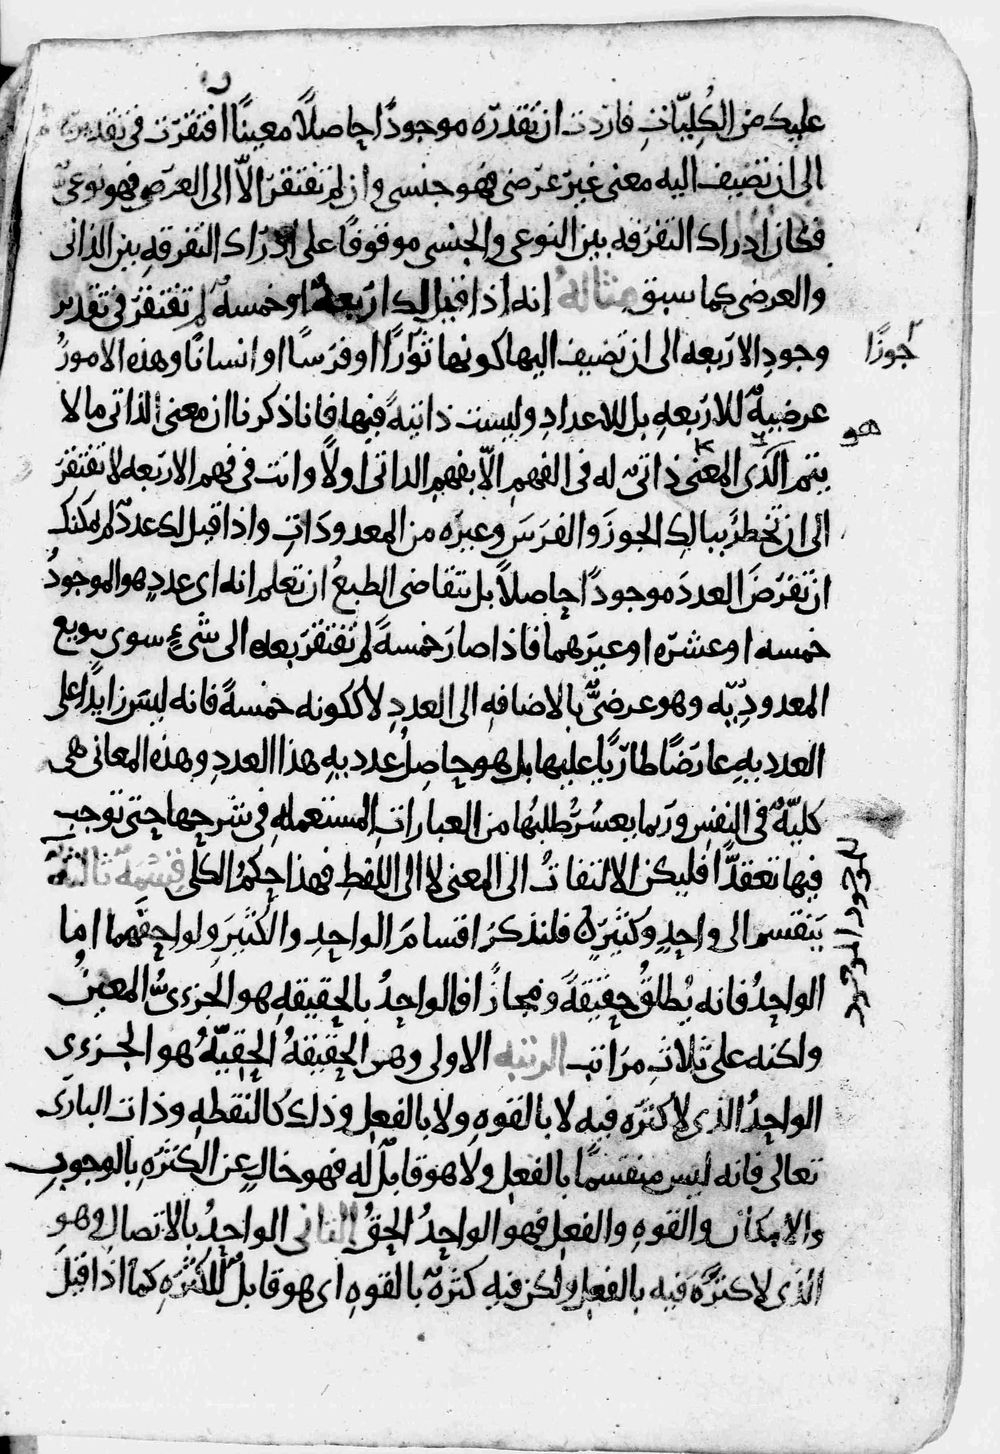 عليك من الكليات فاردت ان تقدره موجودًا حاصلاً معينًا افتقرت فى تقديره
الى ان تضيف اليه معنى غير عرضى فهو جنسى وان لم تفتقر الّا الى العرض فهو نوعى
فكان ادراك التفرقه بين النوعى والجنسى موقوفًا على ادراك التفرقه بين الذاتى
والعرضى كما سبق مثاله انه اذا قيل لك اربعة او خمسه لم تفتقر فى تقدير
وجود الاربعه الى ان تضيف اليها كونها ثورًا او فرسًا او انسانًا وهذه الامور
جوزًا
عرضيةٌ للاربعه بل للاعداد وليست ذاتيةً فيها فانا ذكرنا ان معنى الذاتى ما لا
هو
يتم الذى المعنى ذاتى له فى الفهم الّا بفهم الذاتى اولًا وانت فى فهم الاربعه لا تفتقر
الى ان تخطر ببالك الجوز والفرس وغيره من المعدودات واذا قيل لك عدد لم يمكنك
ان تفرض العدد موجودًا حاصلاً بل تتقاضى الطبع ان تعلم انه اى عدد هو الموجود
خمسه او عشره او غيرهما فاذا صار خمسةً لم تفتقر بعد الى شىء سوى نوع
المعدود به وهو عرضىٌّ بالاضافه الى العدد لا ككونه خمسةً فانه ليس زايدًا على
العدديه عارضًا طاريًا عليها بل هو حاصل عدديه هذا العدد وهذه المعانى هى
كليّةٌ فى النفس وربما يعسر طلبها من العبارات المستعمله فى شرحها حتى توجب
فيها تعقدًّا فليكن الالتفات الى المعنى لا الى اللفظ فهذا حكم الكلى قسمة ثالثة
الموجود
ينقسم الى واحدٍ وكثير فلنذكر اقسام الواحد والكثير ولواحقهما اما
الواحد فانه يُطلق حقيقةً ومجازًا فالواحد بالحقيقه هو الجزءى المعين
ولكنه على ثلاث مراتب الرتبه الاولى وهى الحقيقة الحقيّة هو الجزءى
الواحد الذى لا كثره فيه لا بالقوه ولا بالفعل وذلك كالنقطه وذات البارى
تعالى فانه ليس منقسمًا بالفعل ولا هو قابل له فهو خالٍ عن الكثره بالوجود
والامكان والقوه والفعل فهو الواحد الحق الثانى الواحد بالاتصال وهو
الذى لا كثرة فيه بالفعل ولكن فيه كثرة بالقوه اى هو قابل للكثره كما اذا قيل